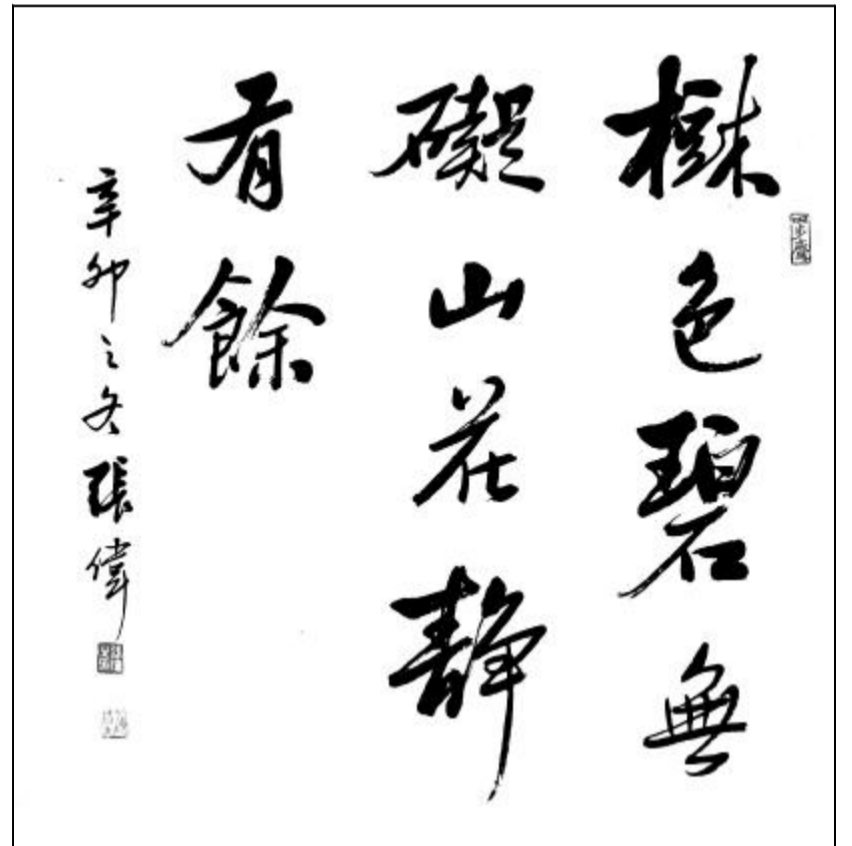 樹色碧無
礙山花靜
有餘
辛卯之冬張偉